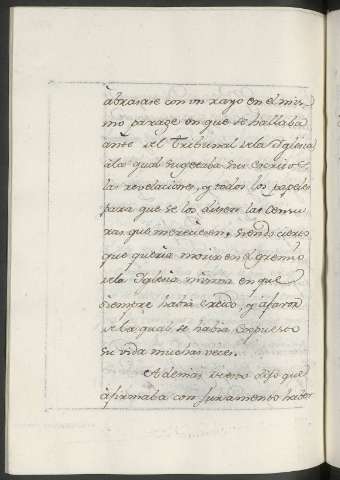 abrasase con un rayo en el mis-
mo parage en que se hallaba
ante el Tribunal de la Yglesia
a la qual sugetaba sus escritos,
las revelaciones, y todos los papeles
para que se los diesen las Censu-
ras que mereciesen, siendo cierto
que queria morir en el gremio
de la Yglesia misma en que
siempre havia creido, y a favor
de la qual se havia expuesto
su vida muchas veces.
Ademas de esto dijo que
afirmaba con juramento haver